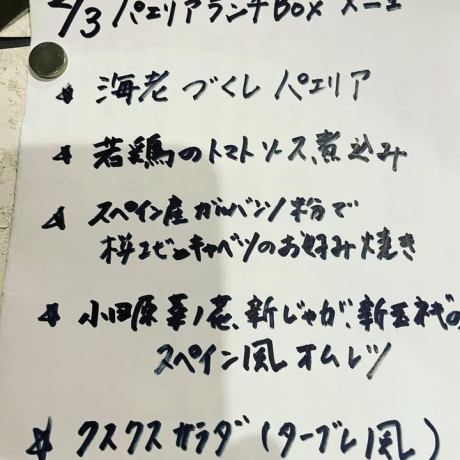 2/3 パエリアランチBox メニュー
☆ 海老づくしパエリア
☆ 若鶏のトマトソース煮込み
☆ スペイン産ガルバンゾ粉で
桜エビとキャベツのお好み焼き
☆ 小田原菜ノ花、新じゃが、新玉ネギの
スペイン風オムレツ
☆ クスクスサラダ(タブレ風)